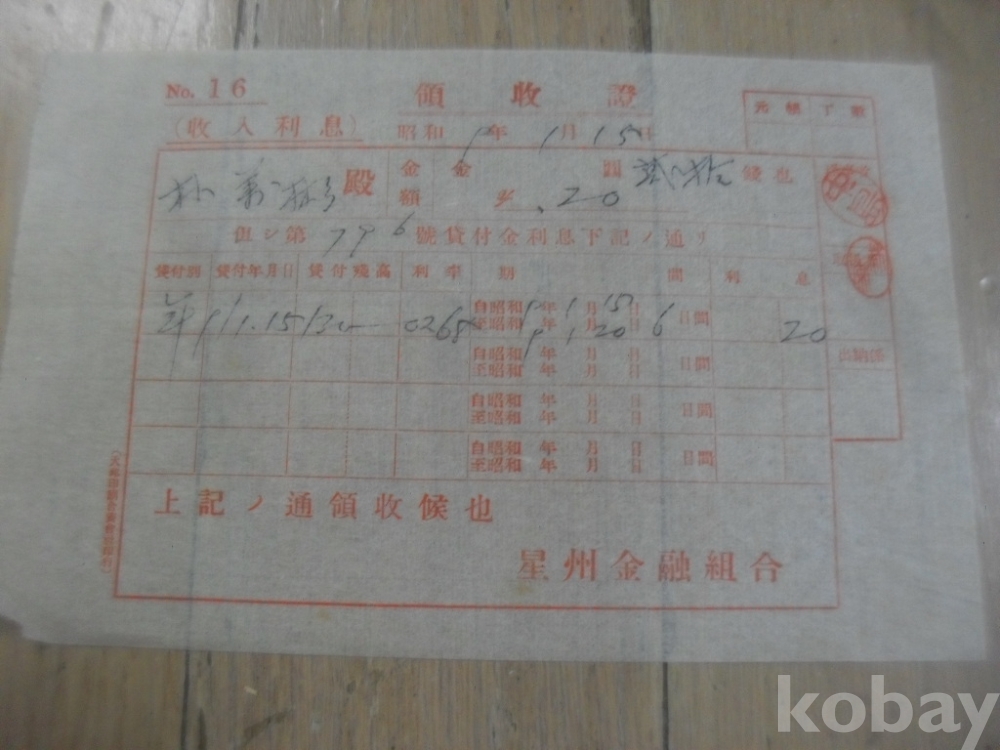 No. 16
領收證
(收入利息)
昭和9年1月15日
元帳丁數
殿
金額 金 圓 貳拾 錢也
.20
但シ第796號貸付金利息下記ノ通リ
貸付別 貸付年月日 貸付殘高 利率 期間 利息
自昭和9年1月15日
9.1.15 0268 至昭和9年1月20日 6日間 20
自昭和 年 月 日
至昭和 年 月 日 日間
自昭和 年 月 日
至昭和 年 月 日 日間
自昭和 年 月 日
至昭和 年 月 日 日間
出納係
上記ノ通領收候也
星州金融組合
kobay